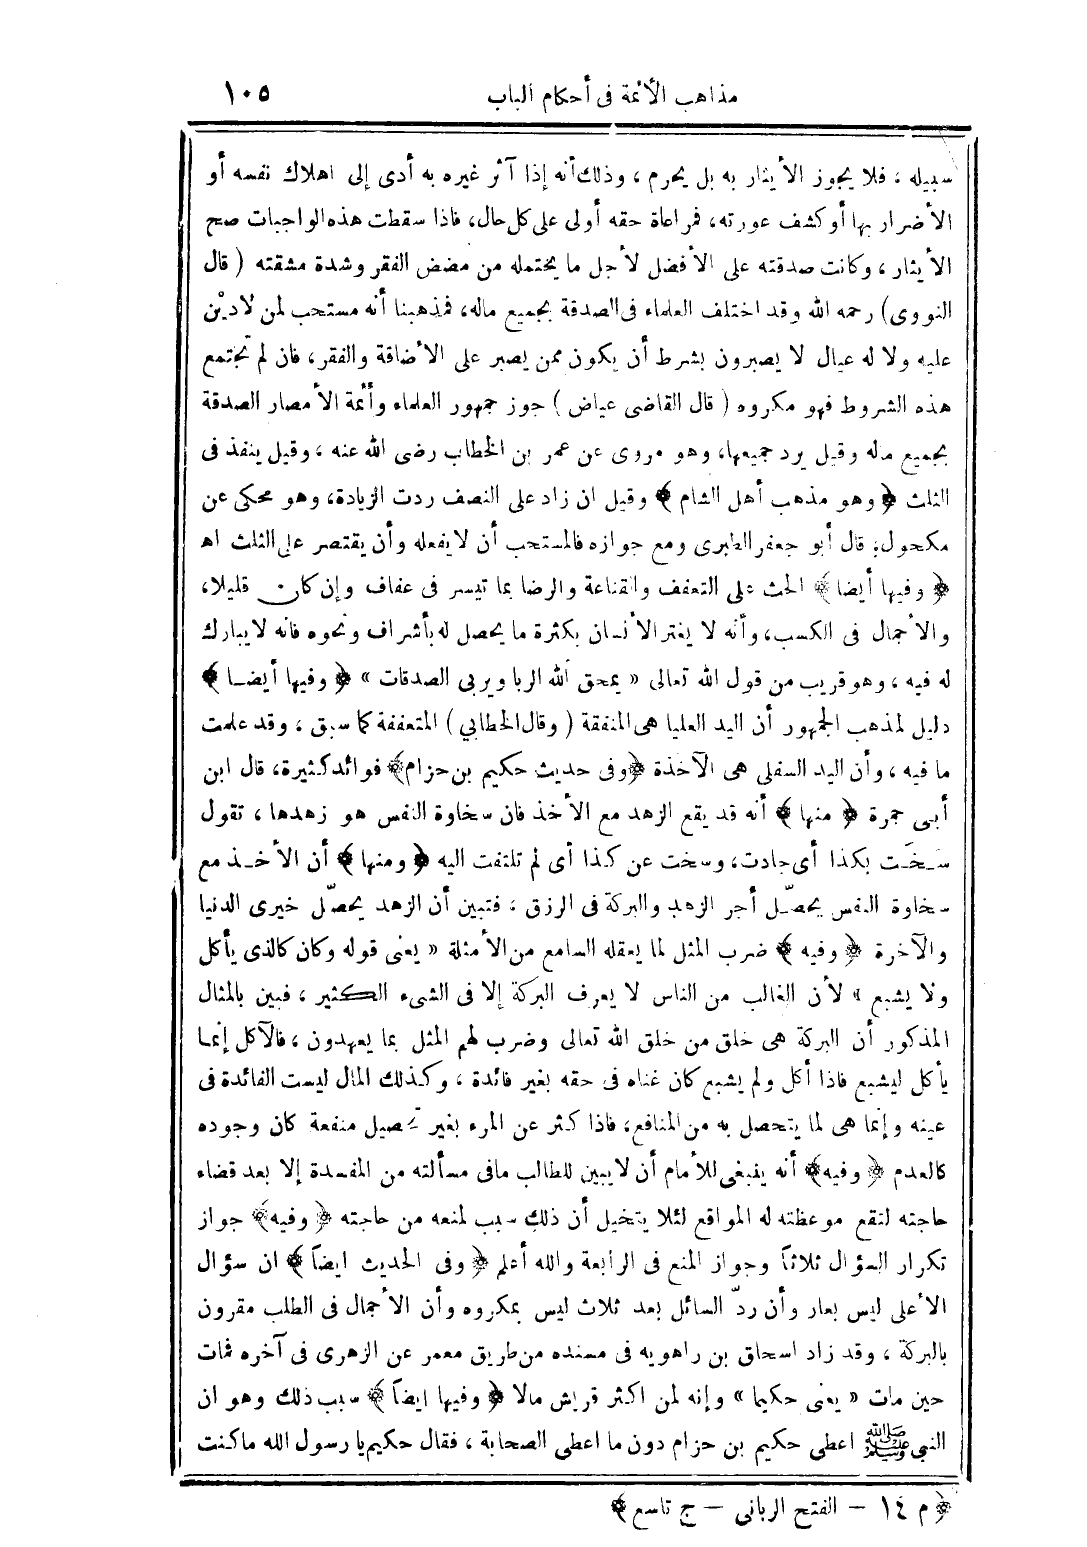 مذاهب الأئمة فى أحكام الباب ١٠٥
سبيله ، فلا يجوز الأيثار به بل يحرم ، وذلك أنه إذا آثر غيره به أدى إلى اهلاك نفسه أو
الأضرار بها أو كشف عورته، فمراعاة حقه أولى على كل حال، فاذا سقطت هذه الواجبات صح
الأيثار ، وكانت صدقته على الأفضل لأجل ما يحتمله من مضض الفقر وشدة مشقته ( قال
النووى) رحمه الله وقد اختلف العلماء فى الصدقة بجميع ماله، فمذهبنا أنه مستحب لمن لادَيْن
عليه ولا له عيال لا يصبرون بشرط أن يكون ممن يصبر على الأضاقة والفقر، فان لم تجتمع
هذه الشروط فهو مكروه ( قال القاضى عياض ) جوز جمهور العلماء وأئمة الأمصار الصدقة
بجميع ماله وقيل يرد جميعها، وهو مروى عن عمر بن الخطاب رضى الله عنه ، وقيل ينفذ فى
الثلث ﴿ وهو مذهب أهل الشام ﴾ وقيل ان زاد على النصف ردت الزيادة، وهو محكى عن
مكحول؛ قال أبو جعفر الطبرى ومع جوازه فالمستحب أن لا يفعله وأن يقتصر على الثلث اهـ
﴿ وفيها أيضا ﴾ الحث على التعفف والقناعة والرضا بما تيسر فى عفاف وإن كان قليلا،
والأجمال فى الكسب، وأنه لا يغتر الأنسان بكثرة ما يحصل له بأشراف ونحوه فانه لا يبارك
له فيه ، وهو قريب من قول الله تعالى « يمحق الله الربا ويربى الصدقات » ﴿ وفيها أيضــا ﴾
دليل لمذهب الجمهور أن اليد العليا هى المنفقة ( وقال الخطابي ) المتعففة كما سبق ، وقد علمت
ما فيه ، وأن اليد السفلى هى الآخذة ﴿وفى حديث حكيم بن حزام﴾ فوائد كثيرة، قال ابن
أبى جمرة ﴿ منها ﴾ أنه قد يقع الزهد مع الأخذ فان سخاوة النفس هو زهدها ، تقول
سَخَت بكذا أى جادت، وسخت عن كذا أى لم تلتفت اليه ﴿ ومنها ﴾ أن الأخــذ مع
سخاوة النفس يحصّــل أجر الزهد والبركة فى الرزق ، فتبين أن الزهد يحصّل خيرى الدنيا
والآخرة ﴿ وفيه ﴾ ضرب المثل لما يعقله السامع من الأمثلة « يعنى قوله وكان كالذى يأكل
ولا يشبع » لأن الغالب من الناس لا يعرف البركة إلا فى الشىء الكثير ، فبين بالمثال
المذكور أن البركة هى خلق من خلق الله تعالى وضرب لهم المثل بما يعهدون ، فالآكل إنما
يأكل ليشبع فاذا أكل ولم يشبع كان غناه فى حقه بغير فائدة ، وكذلك المال ليست الفائدة فى
عينه وإنما هى لما يتحصل به من المنافع، فاذا كثر عن المرء بغير تحصيل منفعة كان وجوده
كالعدم ﴿ وفيه ﴾ أنه ينبغى للأمام أن لا يبين للطالب مافى مسألته من المفسدة إلا بعد قضاء
حاجته لتقع موعظته له المواقع لئلا يتخيل أن ذلك سبب لمنعه من حاجته ﴿ وفيه﴾ جواز
تكرار السؤال ثلاثاً وجواز المنع فى الرابعة والله أعلم ﴿ وفى الحديث ايضاً ﴾ ان سؤال
الأعلى ليس بعار وأن ردّ السائل بعد ثلاث ليس بمكروه وأن الأجمال فى الطلب مقرون
بالبركة ، وقد زاد اسحاق بن راهويه فى مسنده من طريق معمر عن الزهرى فى آخره فمات
حين مات « يعنى حكيما » وإنه لمن اكثر قريش مالا ﴿ وفيها ايضاً ﴾ سبب ذلك وهو ان
النبى ﷺ اعطى حكيم بن حزام دون ما اعطى الصحابة ، فقال حكيم يا رسول الله ما كنت
﴿ م ١٤ – الفتح الربانى – ج تاسع ﴾